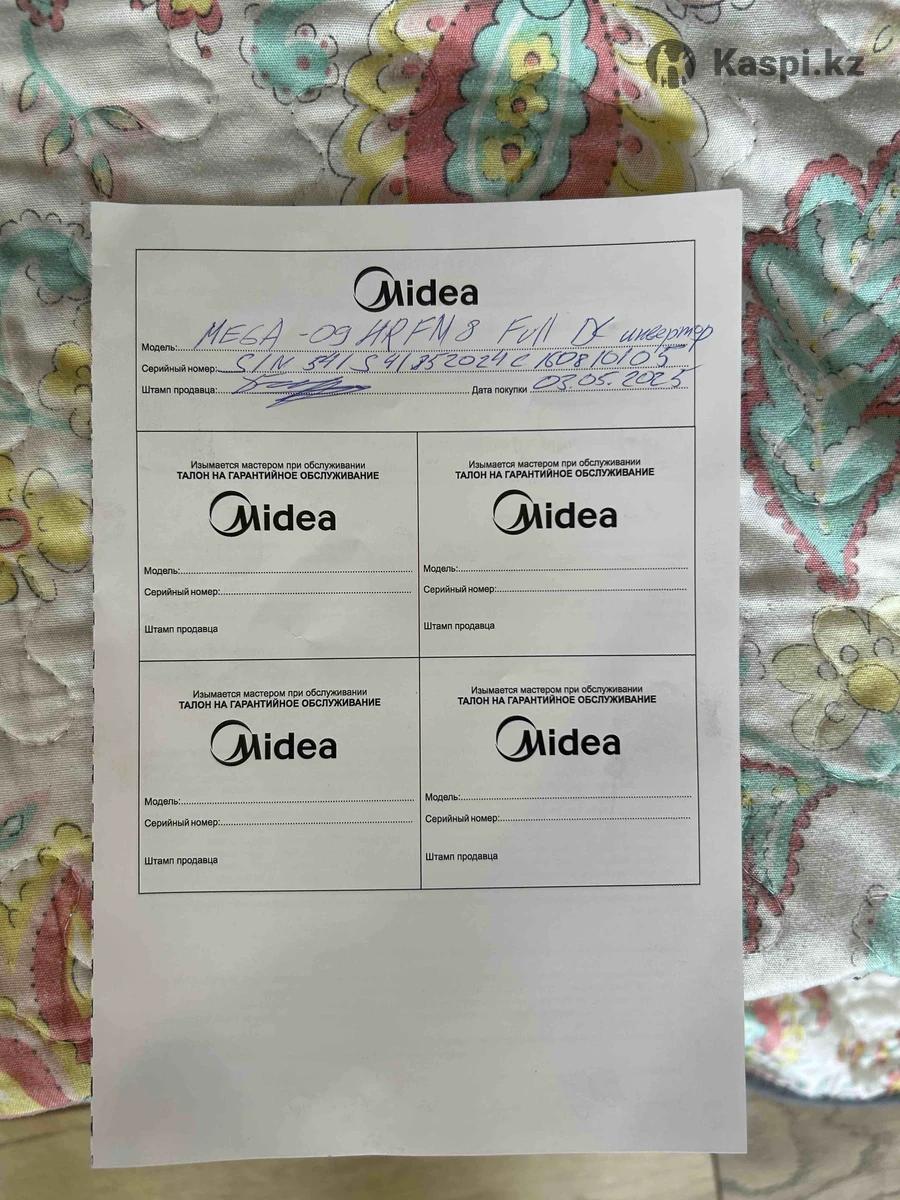 Kaspi.kz
Midea
Модель: MEGA -09 HRFN8 Full DC инвертор
Серийный номер: S/N 541
Штамп продавца: Дата покупки 03.05.2025
Изымается мастером при обслуживании
ТАЛОН НА ГАРАНТИЙНОЕ ОБСЛУЖИВАНИЕ
Midea
Модель:
Серийный номер:
Штамп продавца
Изымается мастером при обслуживании
ТАЛОН НА ГАРАНТИЙНОЕ ОБСЛУЖИВАНИЕ
Midea
Модель:
Серийный номер:
Штамп продавца
Изымается мастером при обслуживании
ТАЛОН НА ГАРАНТИЙНОЕ ОБСЛУЖИВАНИЕ
Midea
Модель:
Серийный номер:
Штамп продавца
Изымается мастером при обслуживании
ТАЛОН НА ГАРАНТИЙНОЕ ОБСЛУЖИВАНИЕ
Midea
Модель:
Серийный номер:
Штамп продавца